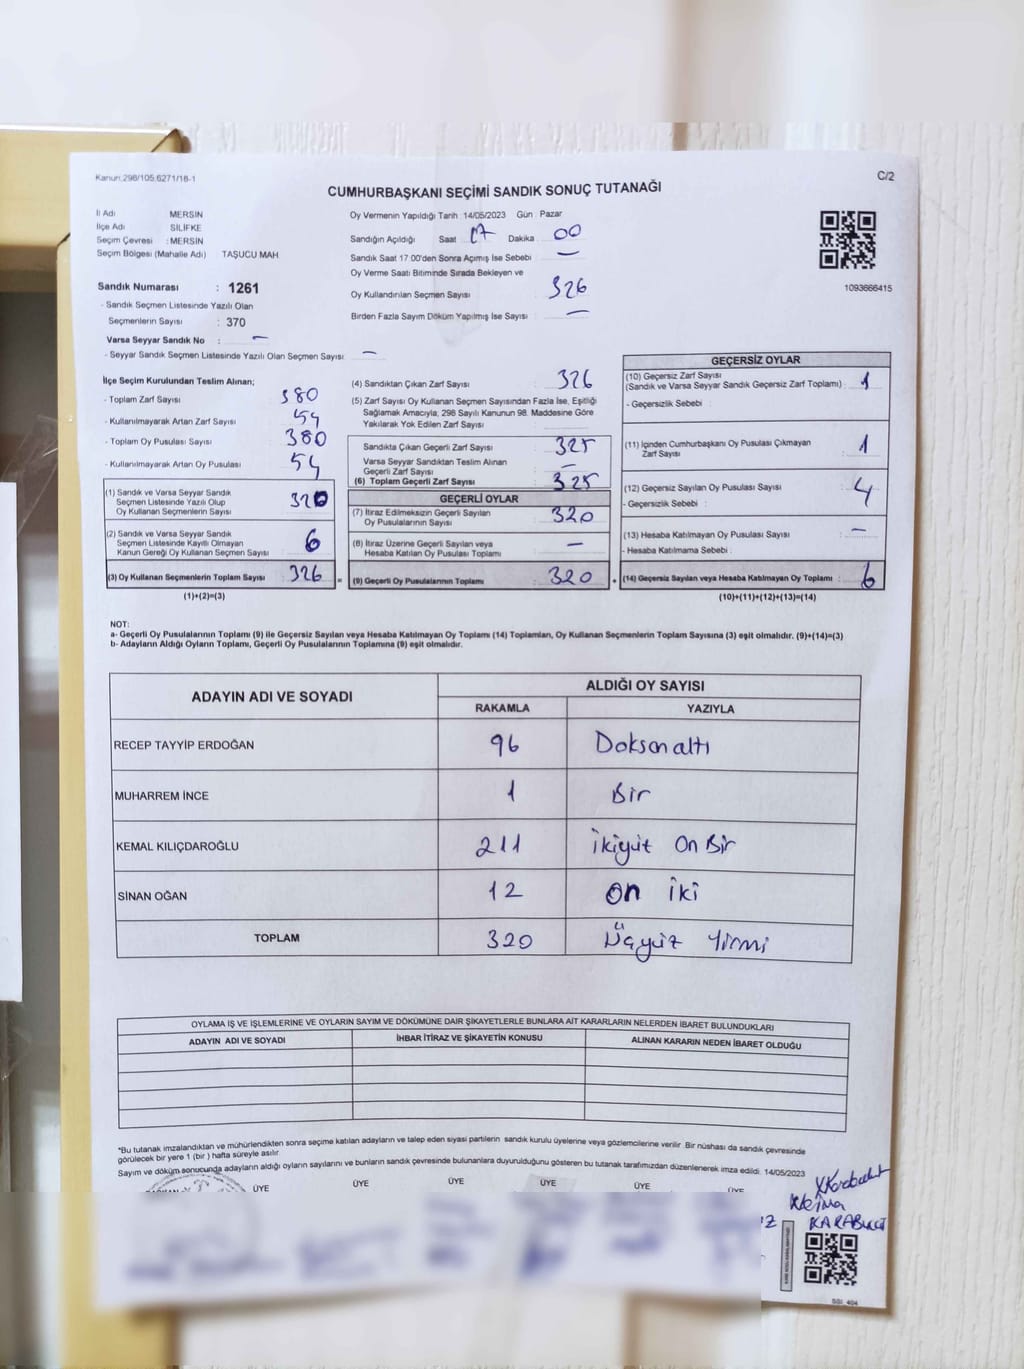 Kanun 298/105,6271/18-1
C/2
CUMHURBAŞKANI SEÇİMİ SANDIK SONUÇ TUTANAĞI
İl Adı MERSİN
İlçe Adı SİLİFKE
Seçim Çevresi : MERSİN
Seçim Bölgesi (Mahalle Adı) TAŞUCU MAH
Sandık Numarası : 1261
- Sandık Seçmen Listesinde Yazılı Olan
Seçmenlerin Sayısı : 370
Varsa Seyyar Sandık No : —
- Seyyar Sandık Seçmen Listesinde Yazılı Olan Seçmen Sayısı: —
Oy Vermenin Yapıldığı Tarih 14/05/2023 Gün Pazar
Sandığın Açıldığı Saat 17 Dakika 00
Sandık Saat 17:00'den Sonra Açımış İse Sebebi —
Oy Verme Saati Bitiminde Sırada Bekleyen ve
Oy Kullandırılan Seçmen Sayısı 326
Birden Fazla Sayım Döküm Yapılmış İse Sayısı —
1093666415
İlçe Seçim Kurulundan Teslim Alınan;
- Toplam Zarf Sayısı 380
- Kullanılmayarak Artan Zarf Sayısı 54
- Toplam Oy Pusulası Sayısı 380
- Kullanılmayarak Artan Oy Pusulası 54
(1) Sandık ve Varsa Seyyar Sandık
Seçmen Listesinde Yazılı Olup
Oy Kullanan Seçmenlerin Sayısı 320
(2) Sandık ve Varsa Seyyar Sandık
Seçmen Listesinde Kayıtlı Olmayan
Kanun Gereği Oy Kullanan Seçmen Sayısı 6
(3) Oy Kullanan Seçmenlerin Toplam Sayısı 326 =
(1)+(2)=(3)
(4) Sandıktan Çıkan Zarf Sayısı 326
(5) Zarf Sayısı Oy Kullanan Seçmen Sayısından Fazla İse, Eşitliği
Sağlamak Amacıyla, 298 Sayılı Kanunun 98. Maddesine Göre
Yakılarak Yok Edilen Zarf Sayısı
Sandıkta Çıkan Geçerli Zarf Sayısı 325
Varsa Seyyar Sandıktan Teslim Alınan
Geçerli Zarf Sayısı —
(6) Toplam Geçerli Zarf Sayısı 325
GEÇERLİ OYLAR
(7) İtiraz Edilmeksizin Geçerli Sayılan
Oy Pusulalarının Sayısı 320
(8) İtiraz Üzerine Geçerli Sayılan veya
Hesaba Katılan Oy Pusulası Toplamı —
(9) Geçerli Oy Pusulalarının Toplamı 320 +
GEÇERSİZ OYLAR
(10) Geçersiz Zarf Sayısı
(Sandık ve Varsa Seyyar Sandık Geçersiz Zarf Toplamı) : 1
- Geçersizlik Sebebi :
(11) İçinden Cumhurbaşkanı Oy Pusulası Çıkmayan
Zarf Sayısı 1
(12) Geçersiz Sayılan Oy Pusulası Sayısı 4
- Geçersizlik Sebebi :
(13) Hesaba Katılmayan Oy Pusulası Sayısı : —
- Hesaba Katılmama Sebebi :
(14) Geçersiz Sayılan veya Hesaba Katılmayan Oy Toplamı : 6
(10)+(11)+(12)+(13)=(14)
NOT:
a- Geçerli Oy Pusulalarının Toplamı (9) ile Geçersiz Sayılan veya Hesaba Katılmayan Oy Toplamı (14) Toplamları, Oy Kullanan Seçmenlerin Toplam Sayısına (3) eşit olmalıdır. (9)+(14)=(3)
b- Adayların Aldığı Oyların Toplamı, Geçerli Oy Pusulalarının Toplamına (9) eşit olmalıdır.
ADAYIN ADI VE SOYADI ALDIĞI OY SAYISI
RAKAMLA YAZIYLA
RECEP TAYYİP ERDOĞAN 96 Doksan altı
MUHARREM İNCE 1 Bir
KEMAL KILIÇDAROĞLU 211 İkiyüz On Bir
SİNAN OĞAN 12 On iki
TOPLAM 320 Üçyüz Yirmi
OYLAMA İŞ VE İŞLEMLERİNE VE OYLARIN SAYIM VE DÖKÜMÜNE DAİR ŞİKAYETLERLE BUNLARA AİT KARARLARIN NELERDEN İBARET BULUNDUKLARI
ADAYIN ADI VE SOYADI İHBAR İTİRAZ VE ŞİKAYETİN KONUSU ALINAN KARARIN NEDEN İBARET OLDUĞU
*Bu tutanak imzalandıktan ve mühürlendikten sonra seçime katılan adayların ve talep eden siyasi partilerin sandık kurulu üyelerine veya gözlemcilerine verilir. Bir nüshası da sandık çevresinde
görülecek bir yere 1 (bir) hafta süreyle asılır.
Sayım ve döküm sonucunda adayların aldığı oyların sayılarını ve bunların sandık çevresinde bulunanlara duyurulduğunu gösteren bu tutanak tarafımızdan düzenlenerek imza edildi. 14/05/2023
ÜYE ÜYE ÜYE ÜYE ÜYE ÜYE
KARABULUT